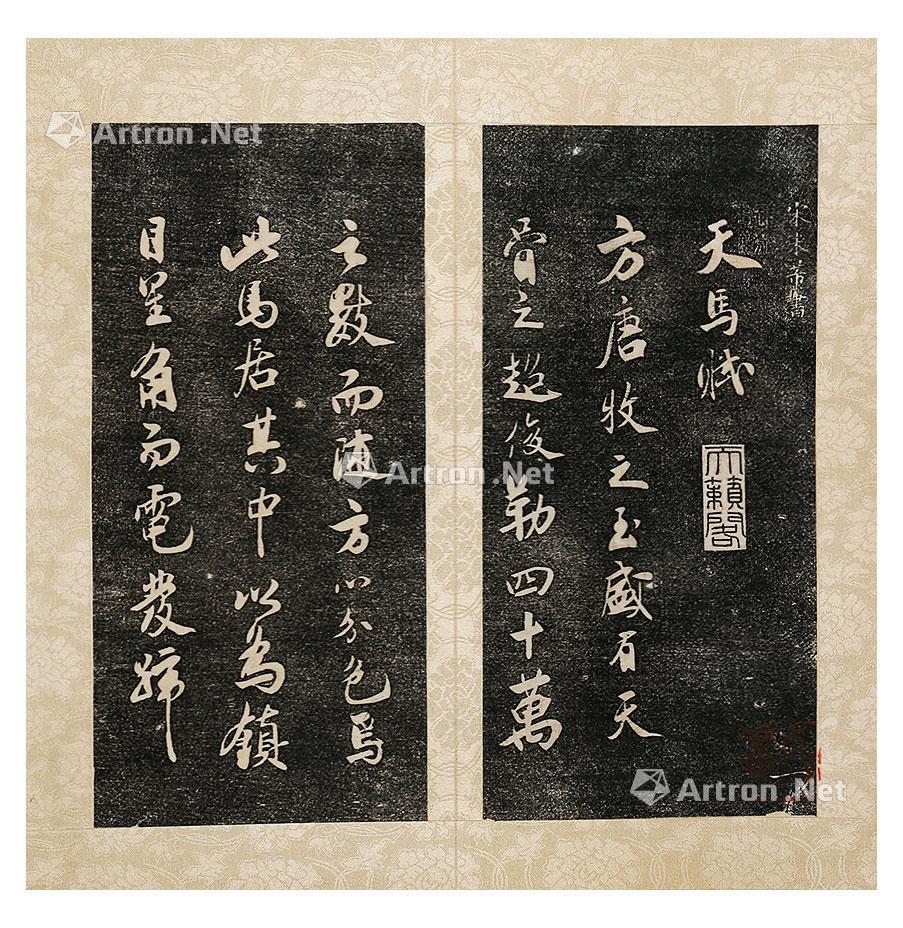 宋米芾書
天馬賦
天籟閣
方唐牧之至盛有天
骨之超俊勒四十萬
之數而隨方以分色焉
此馬居其中以為鎮
目星角而電發蹄
Artron .Net
Artron .Net
Artron .Net